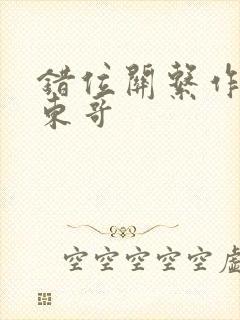 錯位關繫作
東哥
空空空空空虛